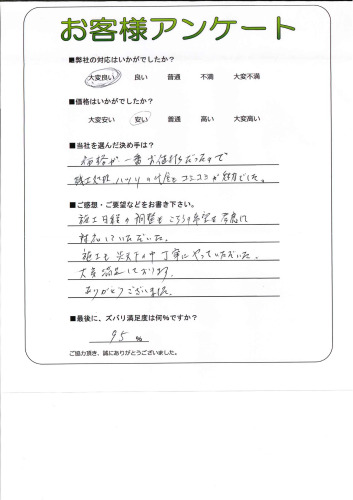 お客様アンケート
■弊社の対応はいかがでしたか?
大変良い 良い 普通 不満 大変不満
■価格はいかがでしたか?
大変安い 安い 普通 高い 大変高い
■当社を選んだ決め手は?
価格が一番お値打だったので
施工処理 ハツリの代金 コミコミが魅力でした。
■ご感想・ご要望などをお書き下さい。
施工日程の調整もこちらの希望を考慮し
対応していただいた。
施工も炎天下の中丁寧にやっていただいた。
大変満足しております。
ありがとうございました。
■最後に、ズバリ満足度は何%ですか?
95 %
ご協力頂き、誠にありがとうございました。